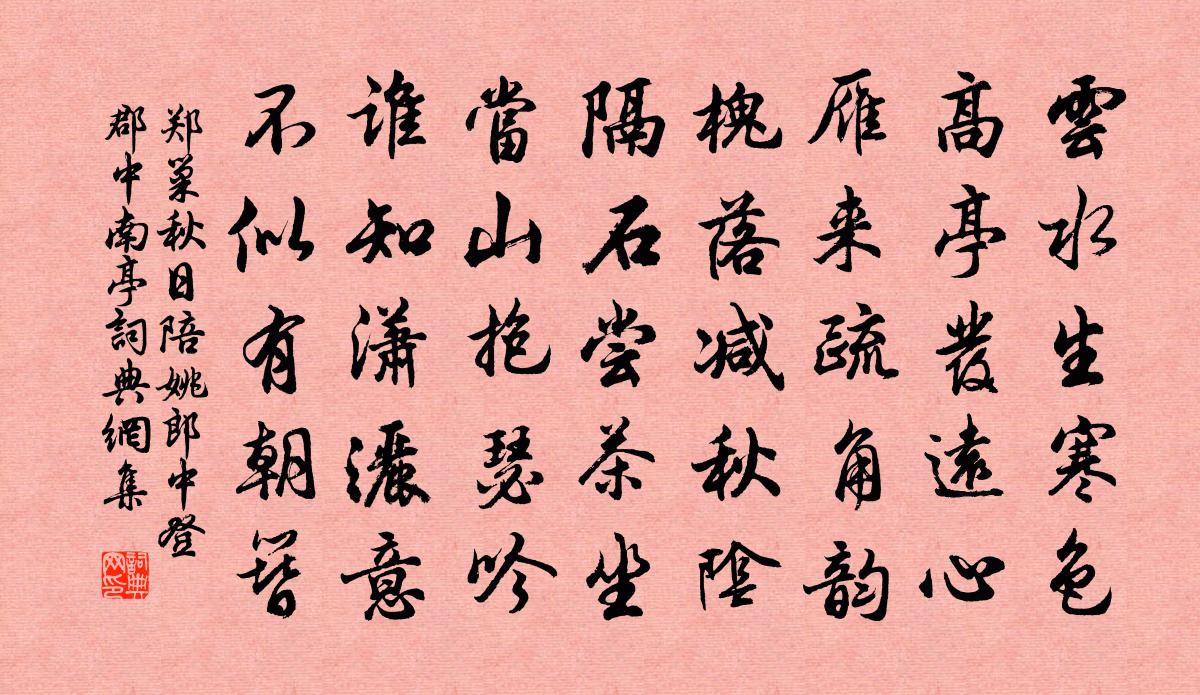 雲水生寒色
高亭發遠心
雁来疏角韵
槐落減秋陰
隔石尝茶坐
當山抱瑟吟
谁知瀟灑意
不似有朝簪
郑巢秋日陪姚郎中登
郡中南亭詞典網集
詞典网印